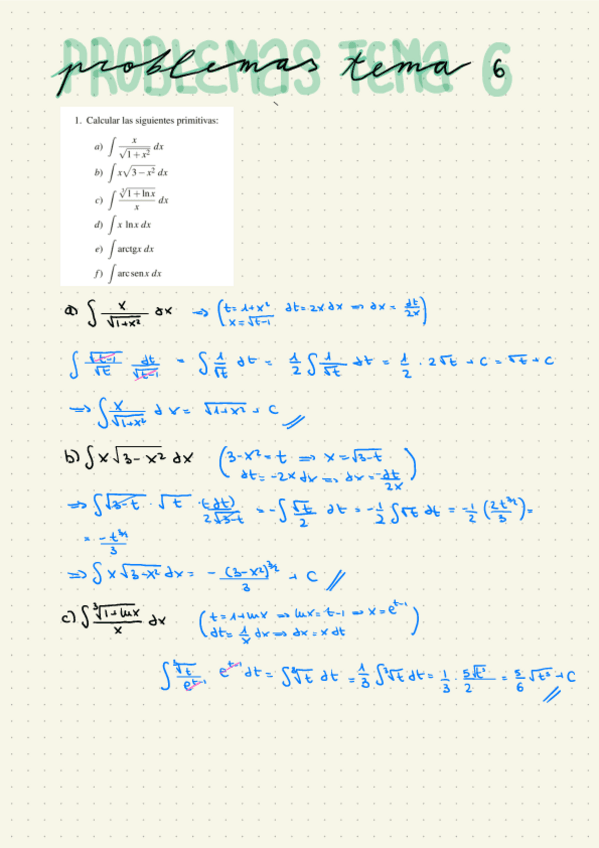 PROBLEMAS TEMA 6
problemas tema 6
1. Calcular las siguientes primitivas:
a) ∫ x/√(1+x²) dx
b) ∫ x√(3−x²) dx
c) ∫ ∛(1+ln x)/x dx
d) ∫ x ln x dx
e) ∫ arctgx dx
f) ∫ arc sen x dx
a) ∫ x/√(1+x²) dx → (t=1+x² dt=2x dx ⇒ dx = dt/2x
x=√(t-1))
∫ √(t-1)/√t dt/√(t-1) = ∫ 1/√t dt = 1/2 ∫ 1/√t dt = 1/2 · 2√t + C = √t + C
⇒ ∫ x/√(1+x²) dx = √(1+x²) + C //
b) ∫ x√(3-x²) dx (3-x²=t ⇒ x=√(3-t)
dt=-2x dx ⇒ dx = -dt/2x)
⇒ ∫ √(3-t) · √t · (-dt)/2√(3-t) = -∫ √t/2 dt = -1/2 ∫ √t dt = -1/2 (2t^(3/2)/3) =
= -t^(3/2)/3
⇒ ∫ x√(3-x²) dx = -(3-x²)^(3/2)/3 + C //
c) ∫ ∛(1+lnx)/x dx (t=1+lnx ⇒ lnx=t-1 ⇒ x=e^(t-1)
dt=1/x dx ⇒ dx=x dt)
e^(t-1) dt = = 1/3 = 1/3 · + C //